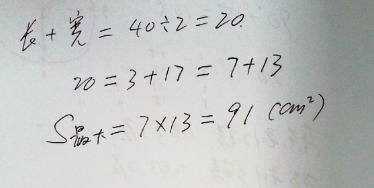 长+宽=40÷2=20.
20=3+17=7+13
S最大=7×13=91(cm²)